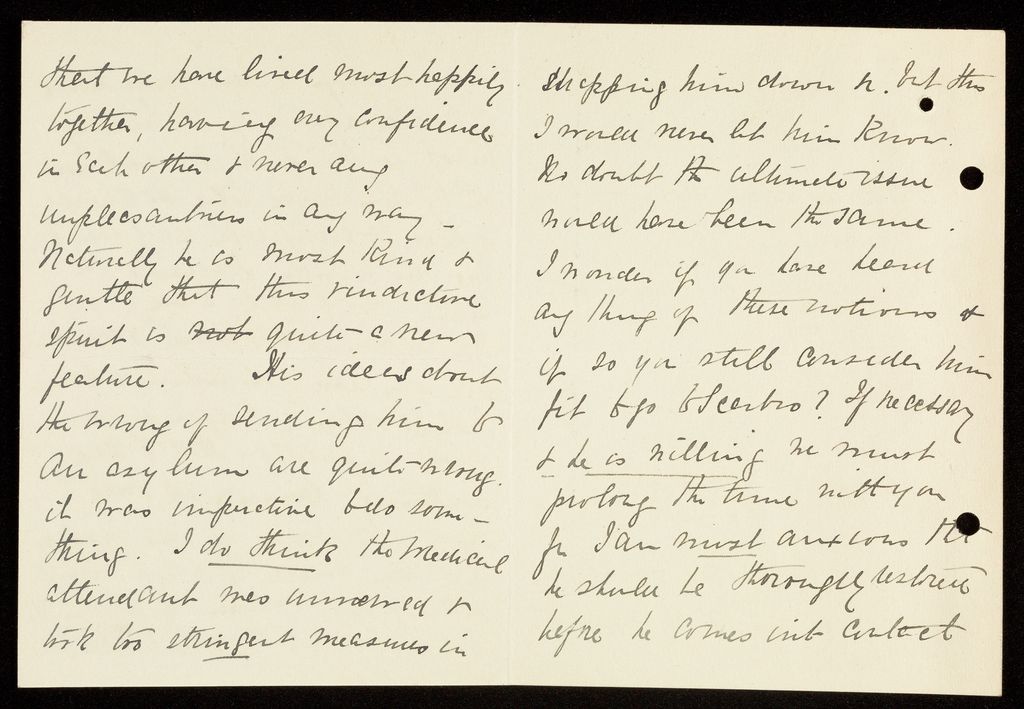 that we have lived most happily
together, having every confidence
in Each other & never any
unpleasantness in any way –
Naturally he is most kind &
gentle that this vindictive
spirit is not quite a new
feature. His ideas about
the wrong of sending him to
an asylum are quite wrong.
it was imperative to do some-
thing. I do think the medical
attendant was unnerved &
took too stringent measures in
strapping him down &c. but this
I would never let him know.
No doubt the ultimate issue
would have been the same.
I wonder if you have heard
any thing of these notions &
if so you still consider him
fit to go to Scarbro? If necessary
& he is willing he must
prolong the time with you
for I am most anxious that
he should be thoroughly restored
before he comes into contact